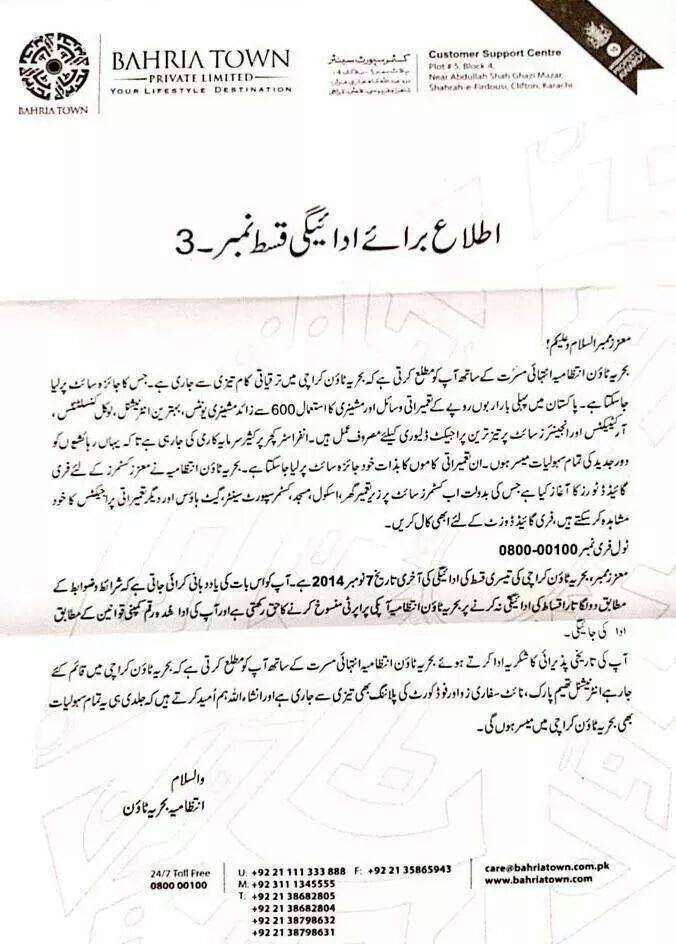 BAHRIA TOWN
BAHRIA TOWN
PRIVATE LIMITED
YOUR LIFESTYLE DESTINATION
کسٹمر سپورٹ سینٹر
Customer Support Centre
Plot # 5, Block 4,
Near Abdullah Shah Ghazi Mazar,
Shahrah-e-Firdousi, Clifton, Karachi
اطلاع برائے ادائیگی قسط نمبر۔3
معزز ممبر السلام وعلیکم!
بحریہ ٹاؤن انتظامیہ انتہائی مسرت کے ساتھ آپ کو مطلع کرتی ہے کہ بحریہ ٹاؤن کراچی میں ترقیاتی کام تیزی سے جاری ہے۔ جس کا جائزہ سائٹ پر لیا
جا سکتا ہے۔ پاکستان میں پہلی بار اربوں روپے کے تعمیراتی وسائل اور مشینری کا استعمال 600 سے زائد مشینری یونٹس، بہترین انٹرنیشنل، لوکل کنسلٹنٹس،
آرکیٹیکٹس اور انجینئرز سائٹ پر تیز ترین پراجیکٹ ڈلیوری کیلئے مصروف عمل ہیں۔ انفراسٹرکچر پر کثیر سرمایہ کاری کی جارہی ہے تا کہ یہاں رہائشیوں کو
دور جدید کی تمام سہولیات میسر ہوں۔ ان تعمیراتی کاموں کا بذات خود جائزہ سائٹ پر لیا جاسکتا ہے۔ بحریہ ٹاؤن انتظامیہ نے معزز کسٹمرز کے لئے فری
گائیڈڈ ٹورز کا آغاز کیا ہے جس کی بدولت اب کسٹمرز سائٹ پر زیر تعمیر گھر، اسکول، مسجد، کسٹمر سپورٹ سینٹر، گیٹ ہاؤس اور دیگر تعمیراتی پراجیکٹس کا خود
مشاہدہ کر سکتے ہیں، فری گائیڈڈ وزٹ کے لئے ابھی کال کریں۔
ٹول فری نمبر 00100-0800
معزز ممبر، بحریہ ٹاؤن کراچی کی تیسری قسط کی ادائیگی کی آخری تاریخ 7 نومبر 2014 ہے۔ آپ کو اس بات کی یاد دہانی کرائی جاتی ہے کہ شرائط وضوابط کے
مطابق دو لگاتار اقساط کی ادائیگی نہ کرنے پر بحریہ ٹاؤن انتظامیہ آپکی پراپرٹی منسوخ کرنے کا حق رکھتی ہے اور آپ کی ادا شدہ رقم کمپنی قوانین کے مطابق
ادا کی جائیگی۔
آپ کی تاریخی پذیرائی کا شکریہ ادا کرتے ہوئے بحریہ ٹاؤن انتظامیہ انتہائی مسرت کے ساتھ آپ کو مطلع کرتی ہے کہ بحریہ ٹاؤن کراچی میں قائم کئے
جارہے انٹرنیشنل تھیم پارک، نائٹ سفاری زو اور فوڈ کورٹ کی پلاننگ بھی تیزی سے جاری ہے اور انشاء اللہ ہم اُمید کرتے ہیں کہ جلدی ہی یہ تمام سہولیات
بھی بحریہ ٹاؤن کراچی میں میسر ہوں گی۔
والسلام
انتظامیہ بحریہ ٹاؤن
24/7 Toll Free
0800 00100
U: +92 21 111 333 888 F: +92 21 35865943
M: +92 311 1345555
T: +92 21 38682805
+92 21 38682804
+92 21 38798632
+92 21 38798631
care@bahriatown.com.pk
www.bahriatown.com